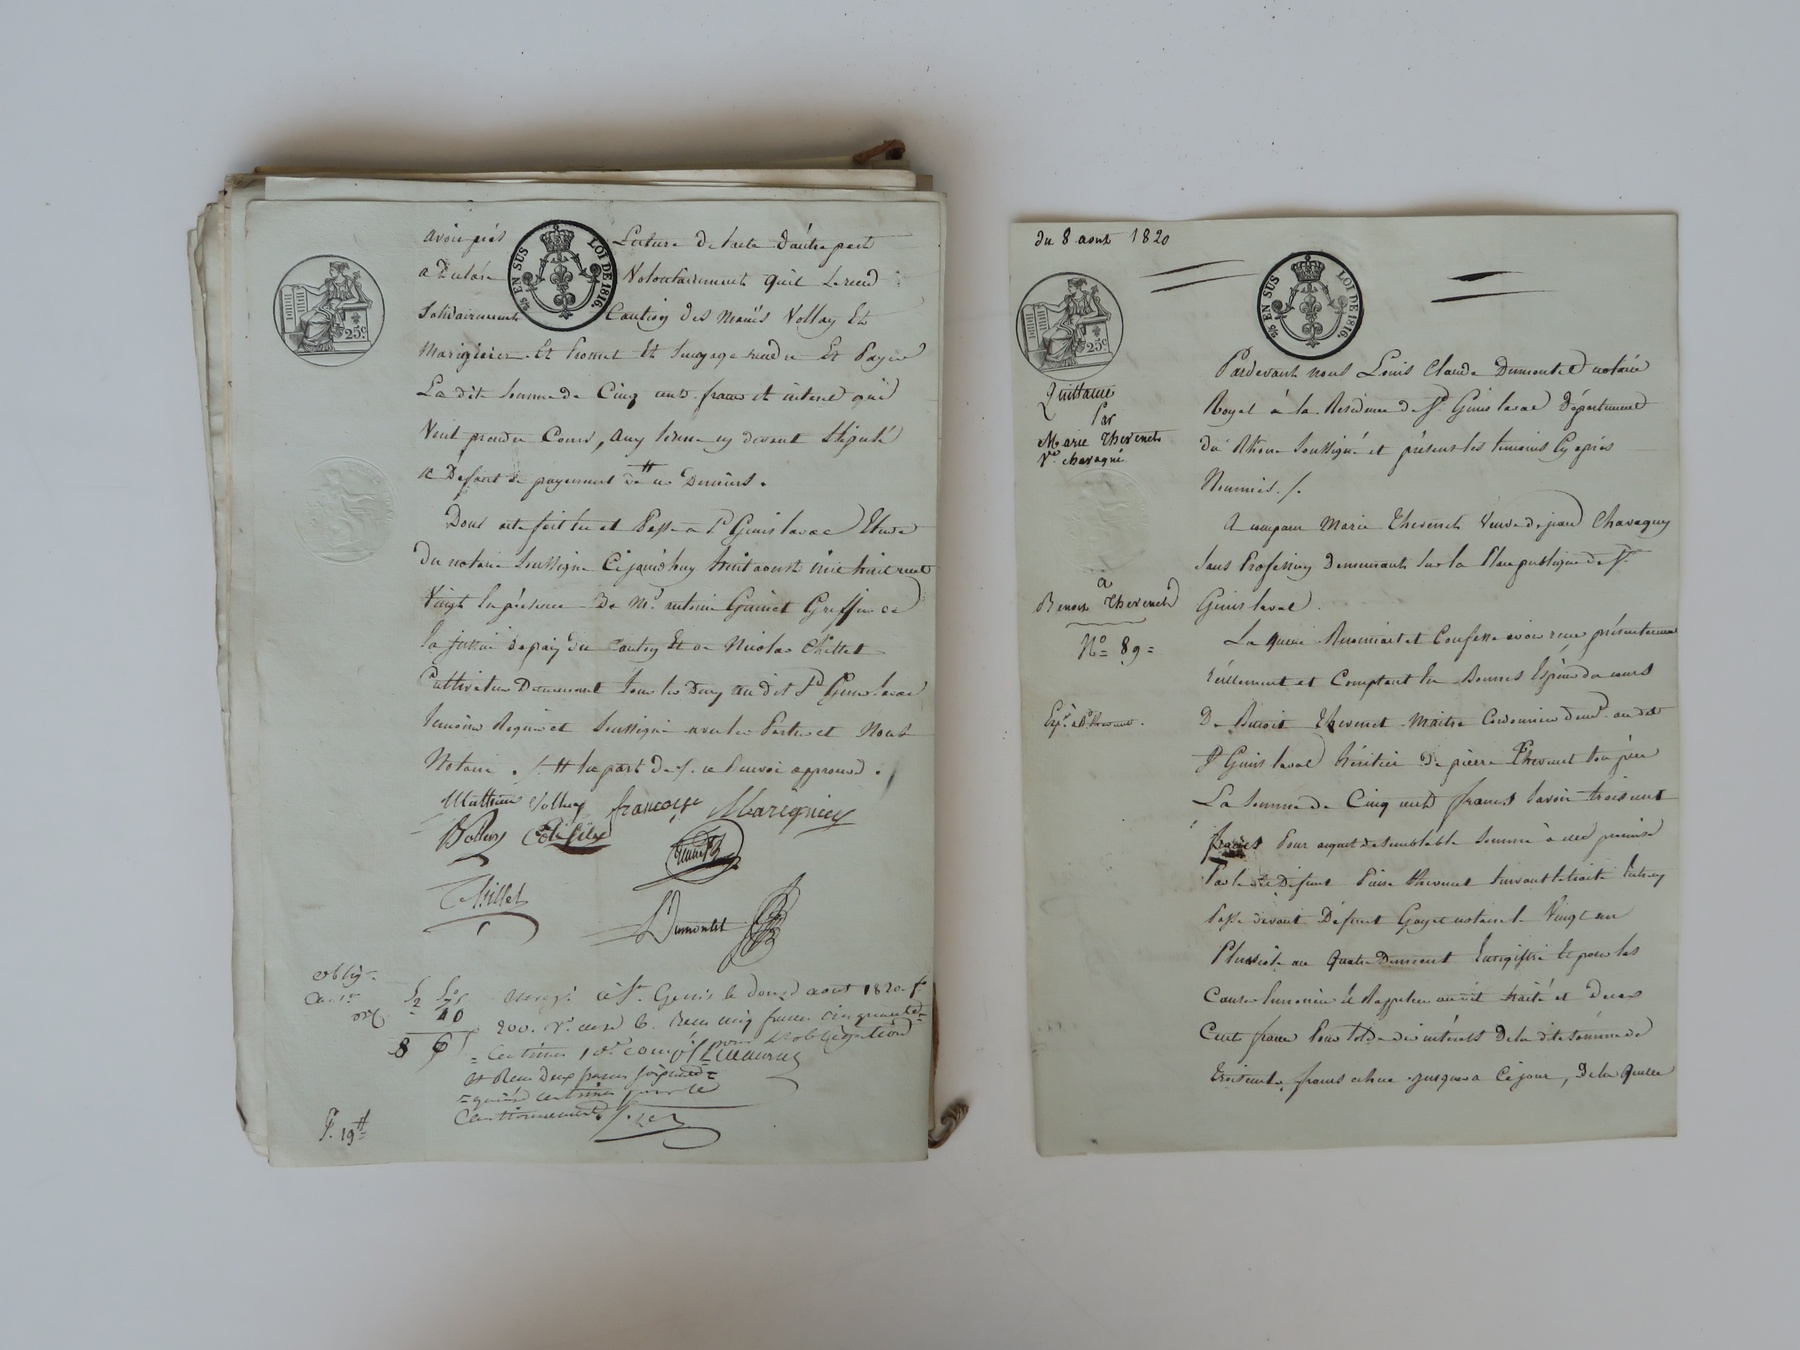 avoir pris Lecture de l'acte d'autre part
a Déclaré Volontairement quil se rend
EN SUS LOI DE 1816.
25c.
Solidairement Caution des mariés Vollay Et
Marignier Et promet Et sengage rendre Et Payer
La dite Somme de Cinq cents francs et interet qui
Vont prendre Cours, au terme cy devant Stipulé
a Defaut de payement de ces Derniers.
Dont acte fait lu et Passé a St Genis laval Etude
Du notaire Soussigné Cejourdhuy huit aoust mil huit cent
Vingt En présence De Mr antoine Greffier de
la justice de paix du canton Et de Nicolas Chillet
Cultivateur Demeurant tous les Deux au dit St Genis laval
temoins Requis et Soussignés avec les Parties et Nous
Notaire. la part De renvoi approuvé.
Mathieu Vollay françoise Marignier
Chillet
Dumontet
oblig.
40
à St. Genis le douze aout 1820 fo
200. Vo case 6. Recu cinq francs cinquante
centimes pour l'obligation
et Recu deux francs soixante
quinze centimes pour le
Cautionnement
8
F. 19
du 8 aout 1820
EN SUS LOI DE 1816.
25c.
Quittance
Par
Marie Thevenet
Ve. chavagné
a
Benoit Thevenet
No 89
Pardevant nous Louis Claude Dumontet notaire
Royal à la Résidence de St. Genis laval Département
du Rhône Soussigné et présents les temoins Cy après
Nommés./.
A comparu Marie Thevenet Veuve de jean Chavagny
Sans Profession Demeurant Sur la Place publique de St.
Genis laval.
La quelle Reconnait et Confesse avoir recu présentement
réellement et Comptant En Bonnes Espèces de cours
De Benoit Thevenet Maitre Cordonnier demt. au dit
St Genis laval héritier de pierre Thevenet Son père
La Somme de Cinq cents francs Savoir trois cent
francs Pour acquit de semblable Somme à elle promise
Par le dit Défunt Pierre thevenet Suivant le traité Entreux
Passé devant Défunt Goyet notaire le Vingt un
Pluviose an quatre Dument Enregistré Et pour les
Causes Enoncées Et Rappellées au dit traité et Deux
Cent francs Pour Solde des intérets De la dite Somme de
trois cents francs échus jusqu'a Ce jour, De la quelle